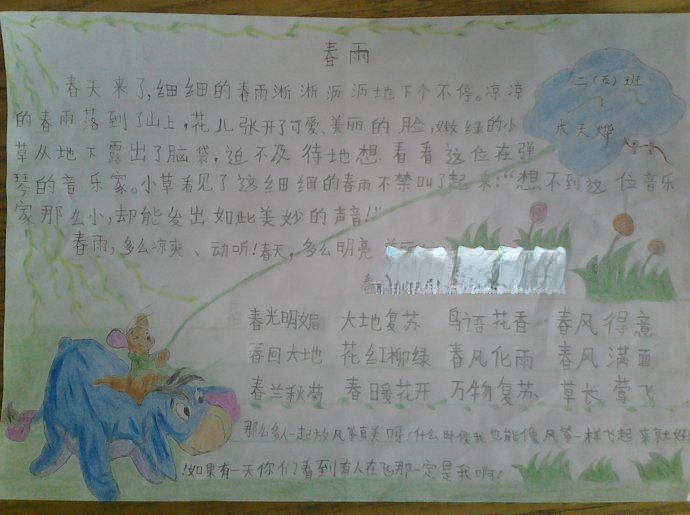 春雨
二(五)班
春天来了,细细的春雨淅淅沥沥地下个不停。凉凉
的春雨落到了山上,花儿张开了可爱、美丽的脸,嫩绿的小
天烨
草从地下露出了脑袋,迫不及待地想看看这位在弹
琴的音乐家。小草看见了这细细的春雨不禁叫了起来:“想不到这位音乐
家那么小,却能发出如此美妙的声音!”
春雨,多么凉爽、动听!春天,多么明亮
春
春光明媚 大地复苏 鸟语花香 春风得意
春回大地 花红柳绿 春风化雨 春风满面
春兰秋菊 春暖花开 万物复苏 草长莺飞
那么多人一起放风筝真美呀!什么时候我也能像风筝一样飞起来就好
!如果有一天你们看到有人在飞,那一定是我啊!